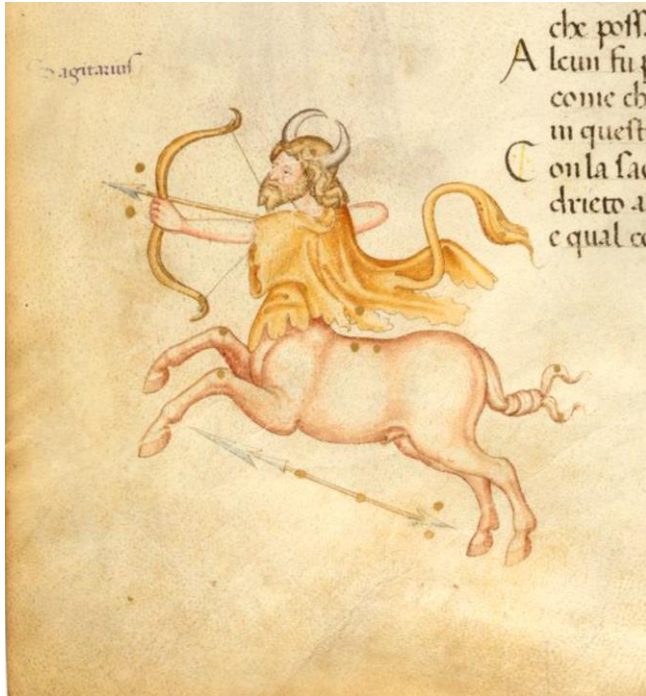 Sagitariuſ
che poſſ
A lcun fu p
come ch
in queſt
C on la ſac
drieto a
e qual co